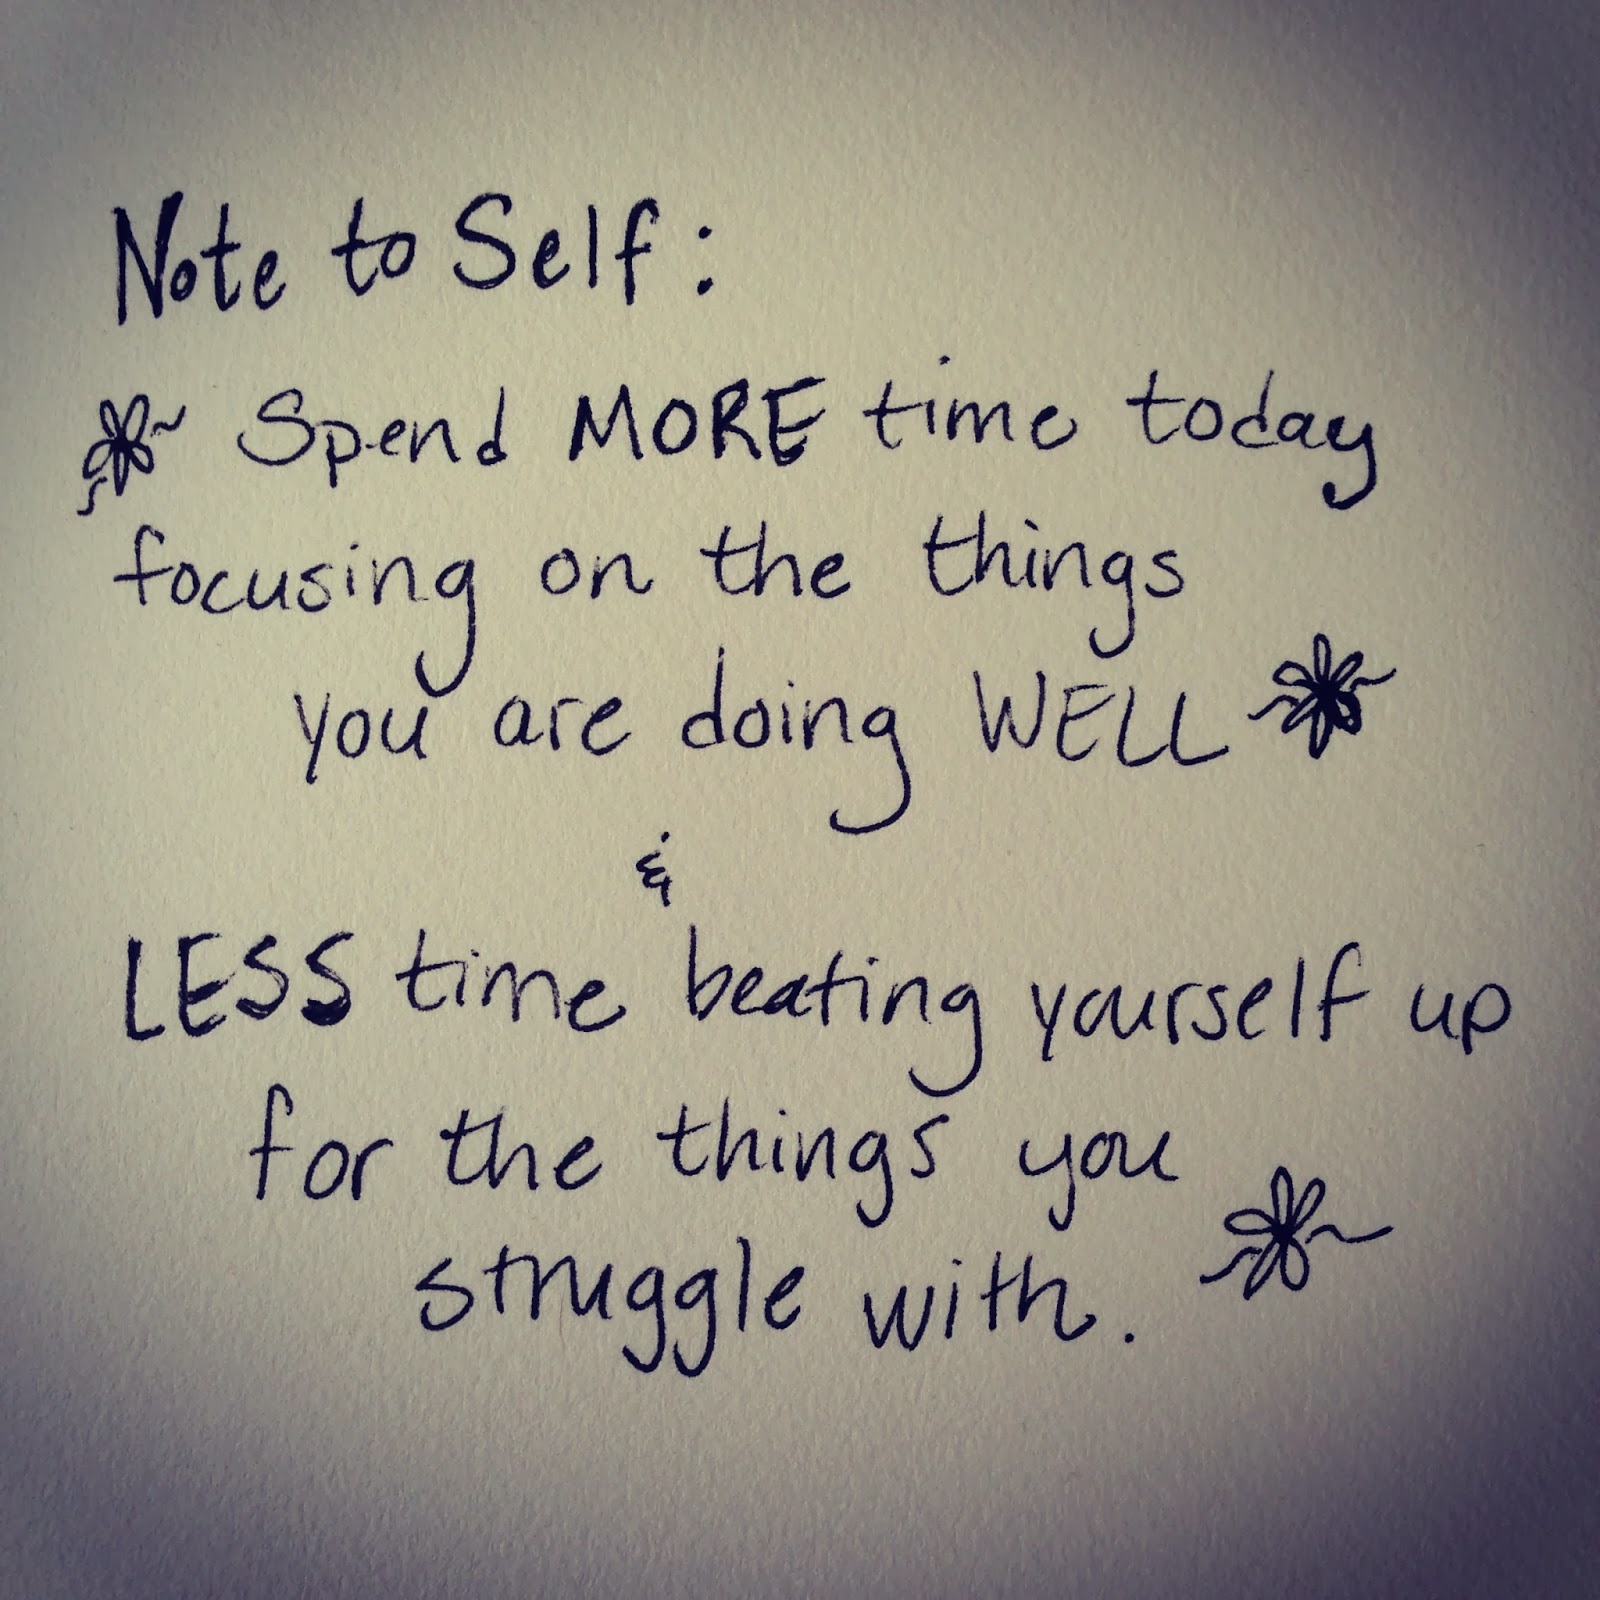 Note to Self:
Spend MORE time today
focusing on the things
you are doing WELL
&
LESS time beating yourself up
for the things you
struggle with.